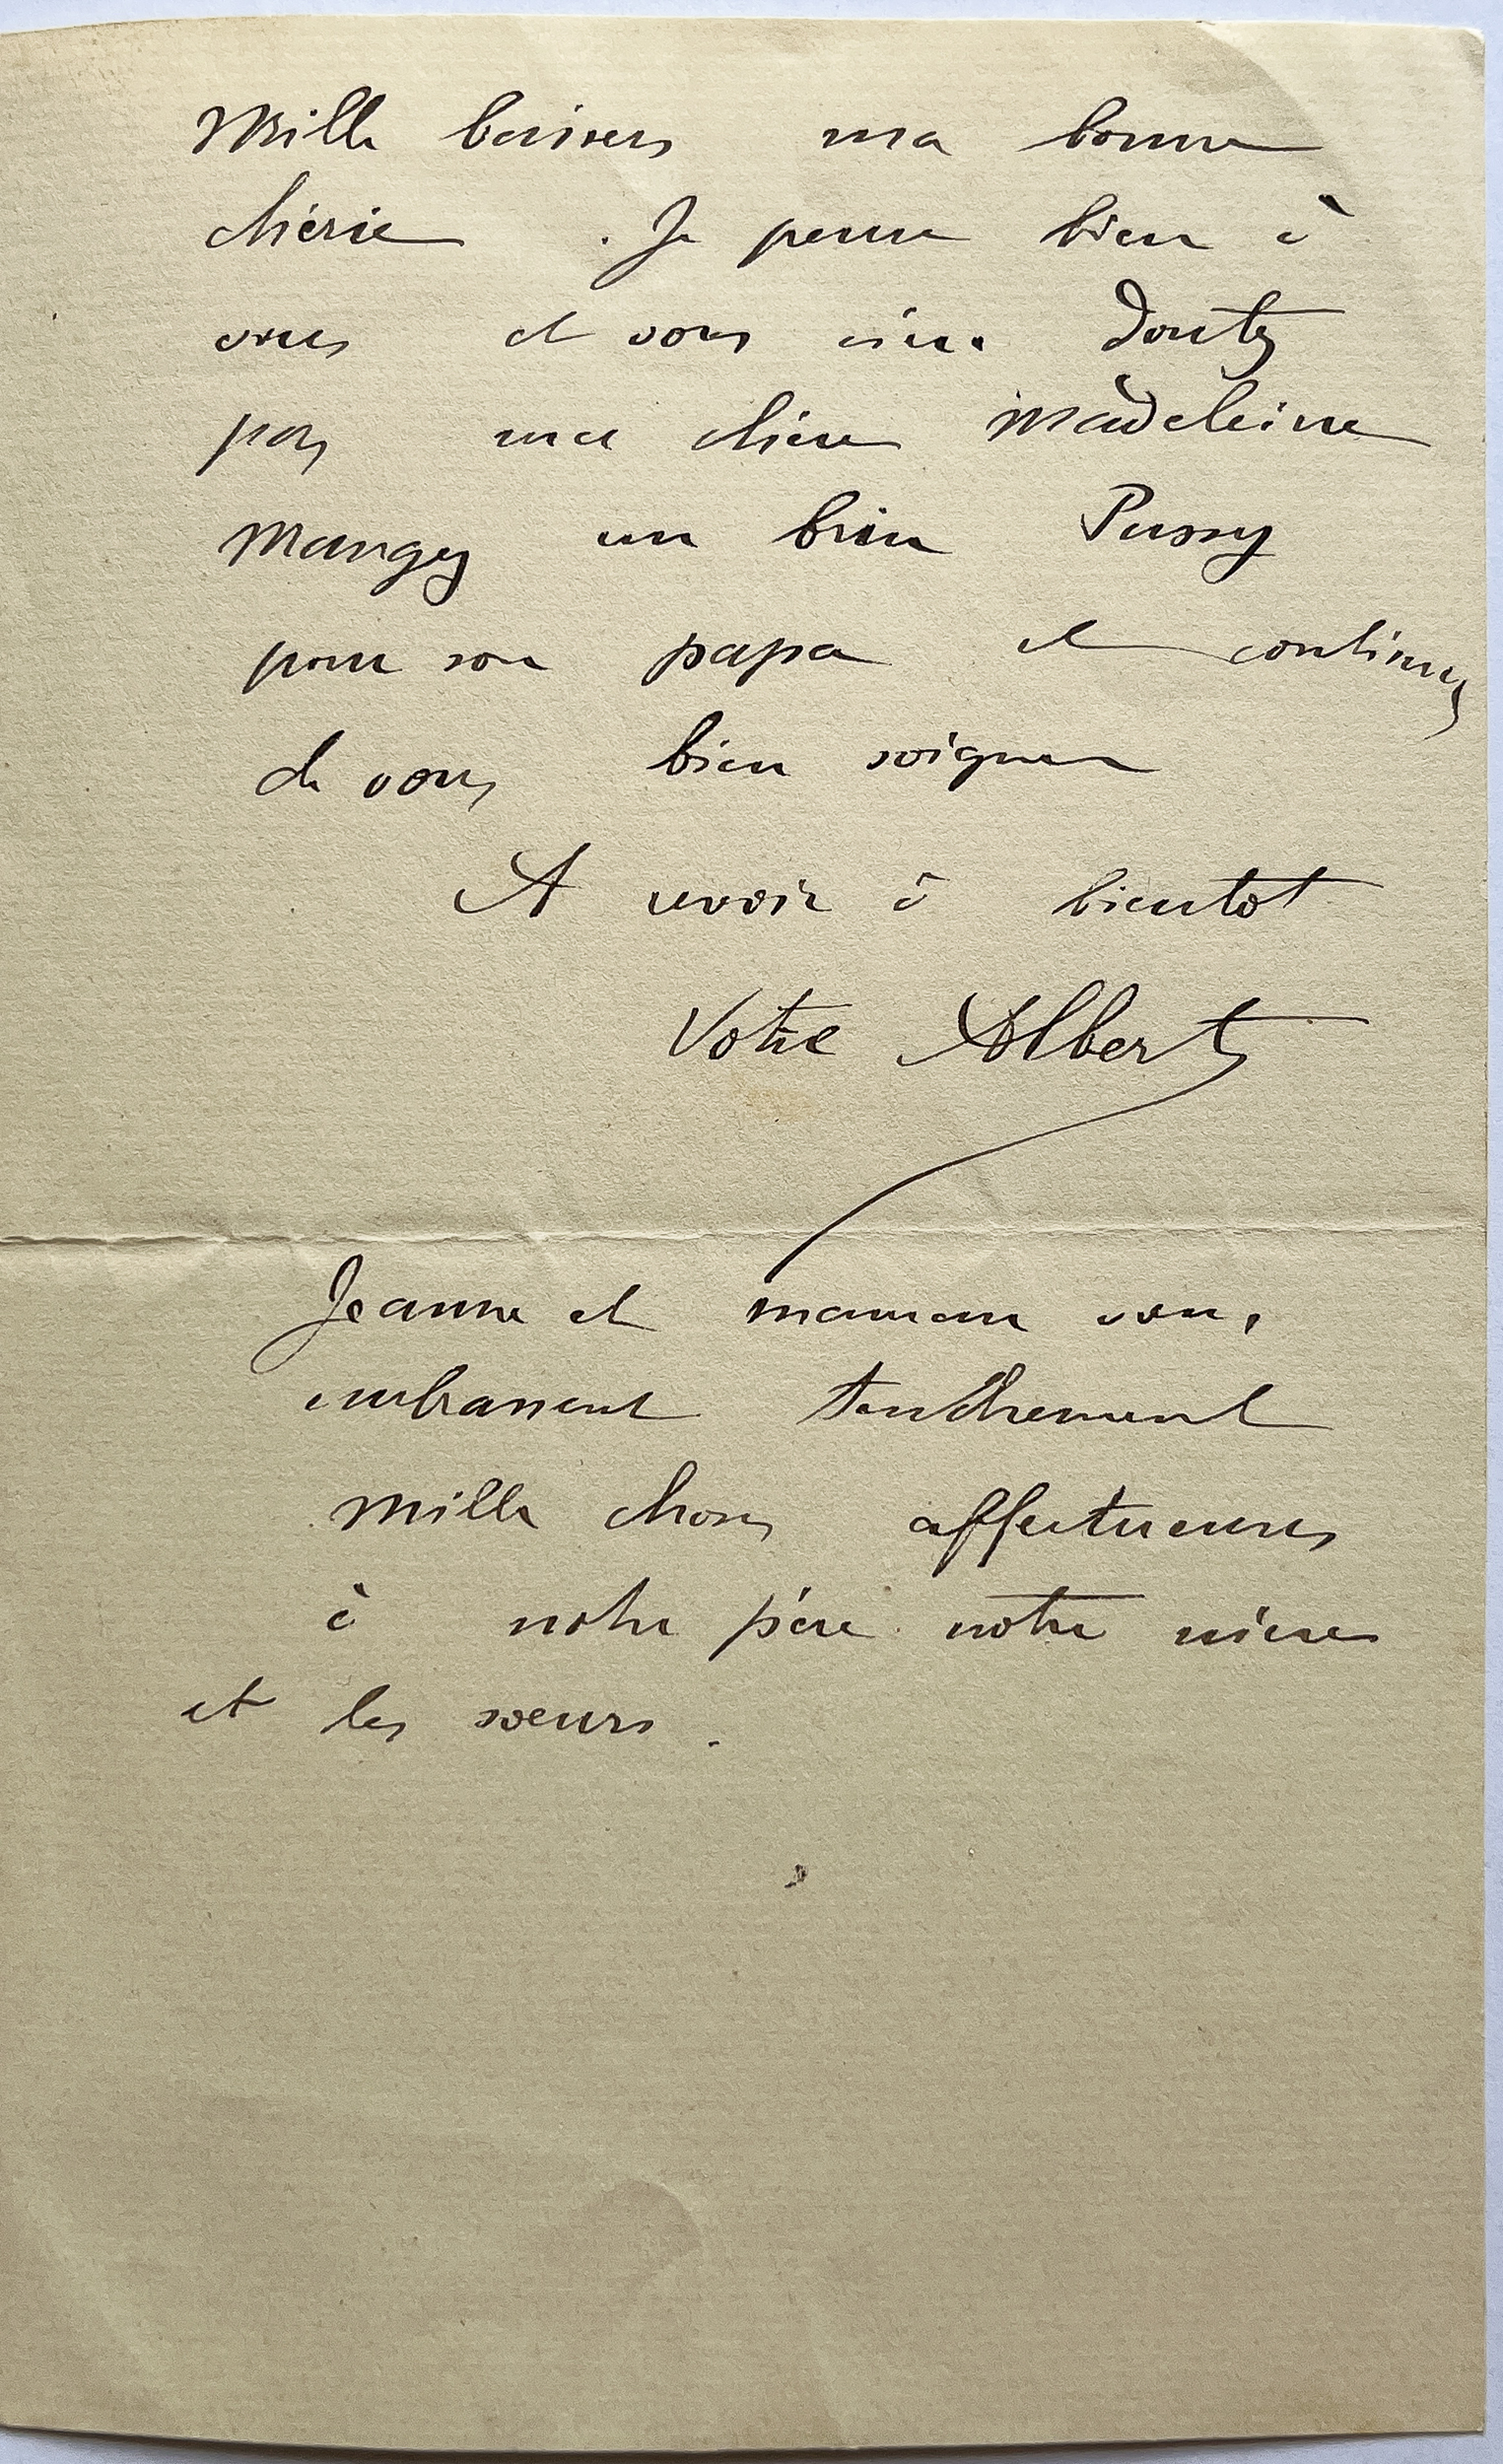 Mille baisers ma bonne
chérie. Je pense bien à
vous et vous n'en doutez
pas ma chère Madeleine
Mangez un brin Pussy
pour son papa et continuez
de vous bien soigner
A revoir à bientôt
Votre Albert
Jeanne et maman vous
embrassent tendrement
Mille choses affectueuses
à notre père notre mère
et les sœurs.